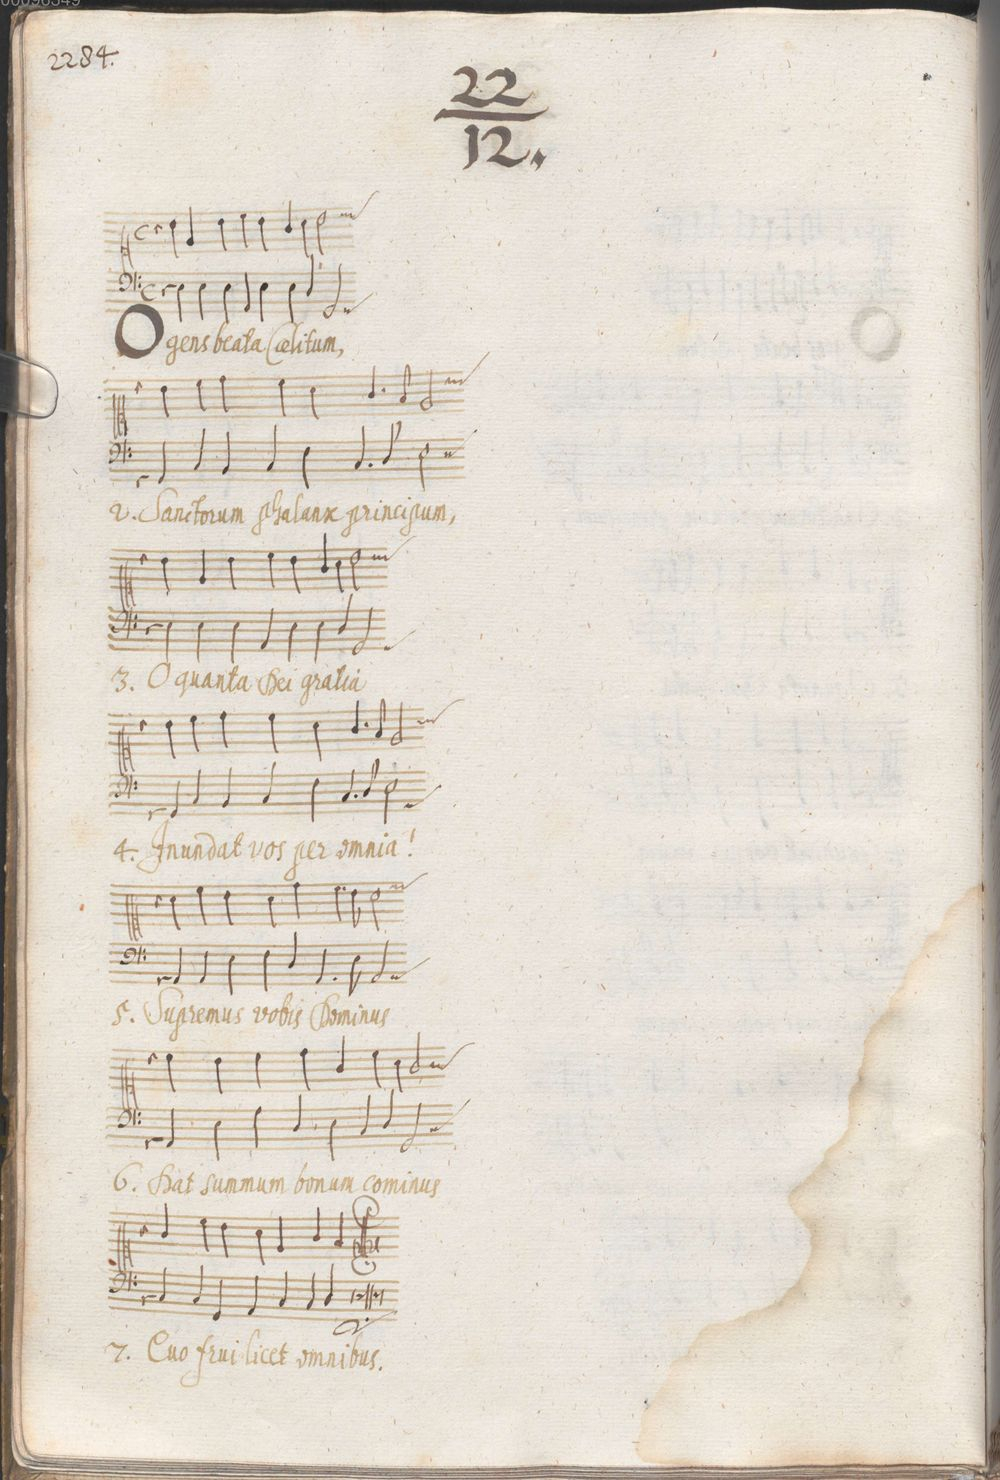 00098549
2284.
22
12.
O gens beata Cœlitum,
2. Sanctorum phalanx principum,
3. O quanta Dei gratia
4. Inundat vos per omnia!
5. Supremus vobis Dominus
6. Dat summum bonum cominus
7. Cuo frui licet omnibus.